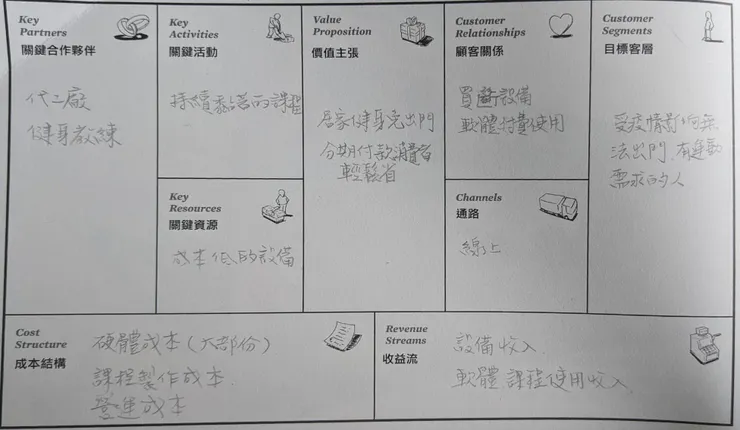 Key
Partners
關鍵合作夥伴
代工廠
健身教練
Key
Activities
關鍵活動
持續黏著的課程
Key
Resources
關鍵資源
成本低的設備
Value
Proposition
價值主張
居家健身免出門
分期付款消費者
輕鬆省
Customer
Relationships
顧客關係
買斷設備
軟體付費使用
Channels
通路
線上
Customer
Segments
目標客層
受疫情影响無
法出門,有運動
需求的人
Cost
Structure
成本結構
硬體成本(大部份)
課程製作成本
營運成本
Revenue
Streams
收益流
設備收入
軟體課程使用收入